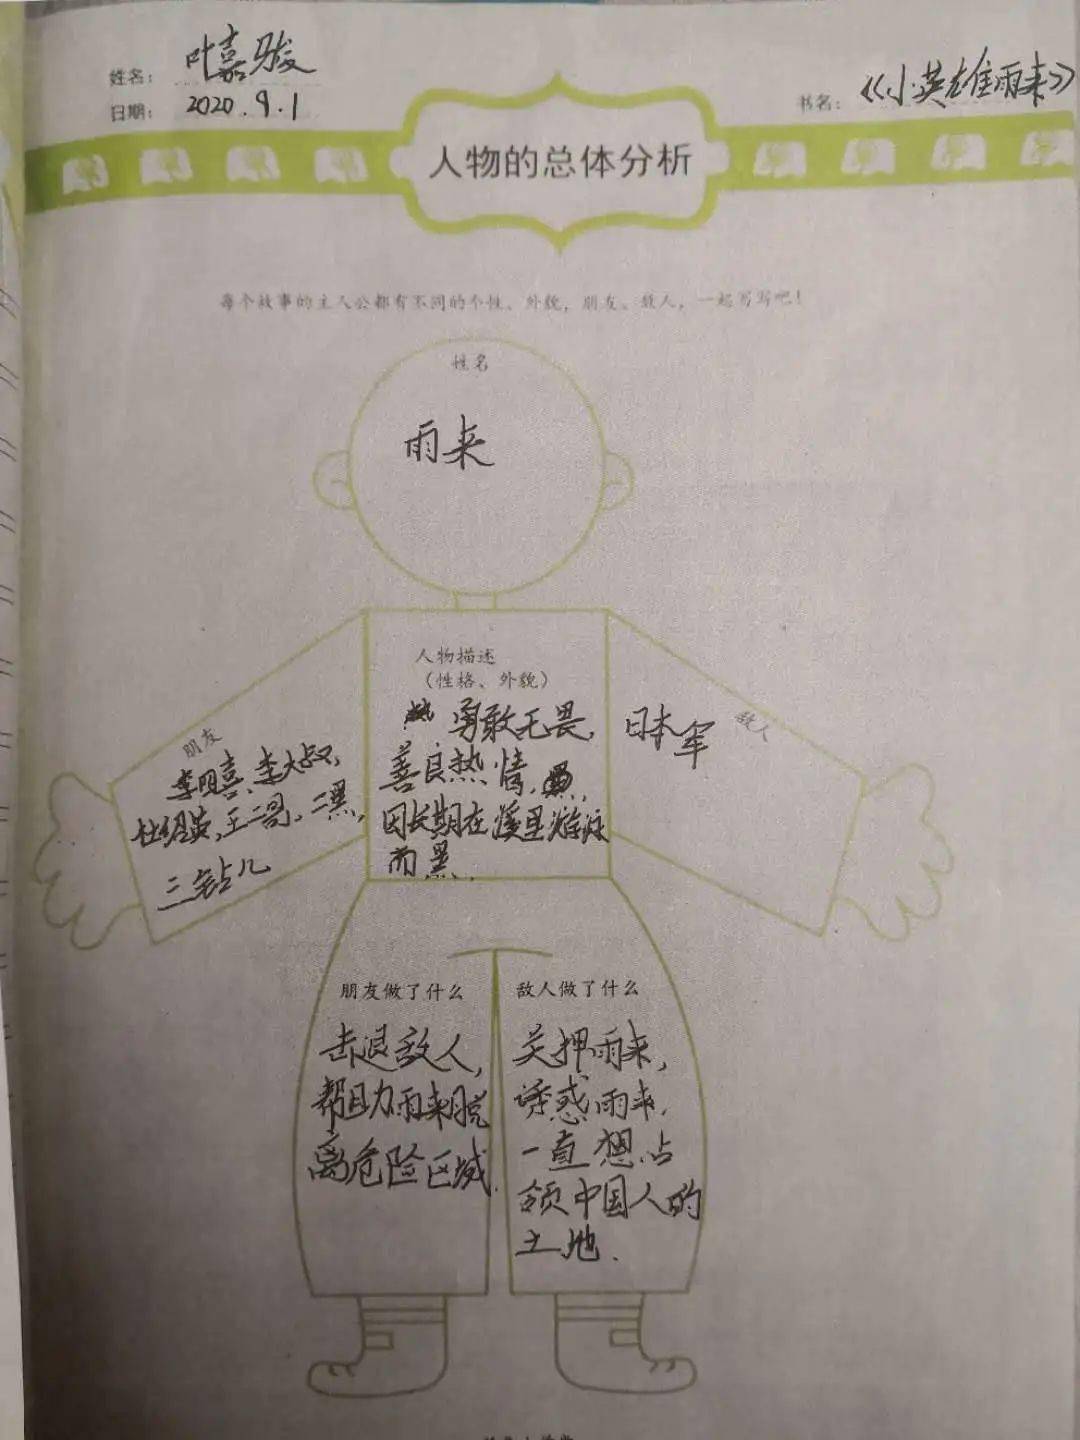 姓名： 叶嘉骏
日期： 2020.9.1
书名： 《小英雄雨来》
人物的总体分析
每个故事的主人公都有不同的个性、外貌，朋友、敌人，一起写写吧！
姓名
雨来
人物描述
（性格、外貌）
勇敢无畏,
善良热情,
因长期在溪里游泳
而黑.
朋友
李明喜、李大叔,
杜绍英,王二哥,二黑,
三钻儿
敌人
日本军
朋友做了什么
击退敌人,
帮助雨来脱
离危险区域.
敌人做了什么
关押雨来,
诱惑雨来,
一直想占
领中国人的
土地.